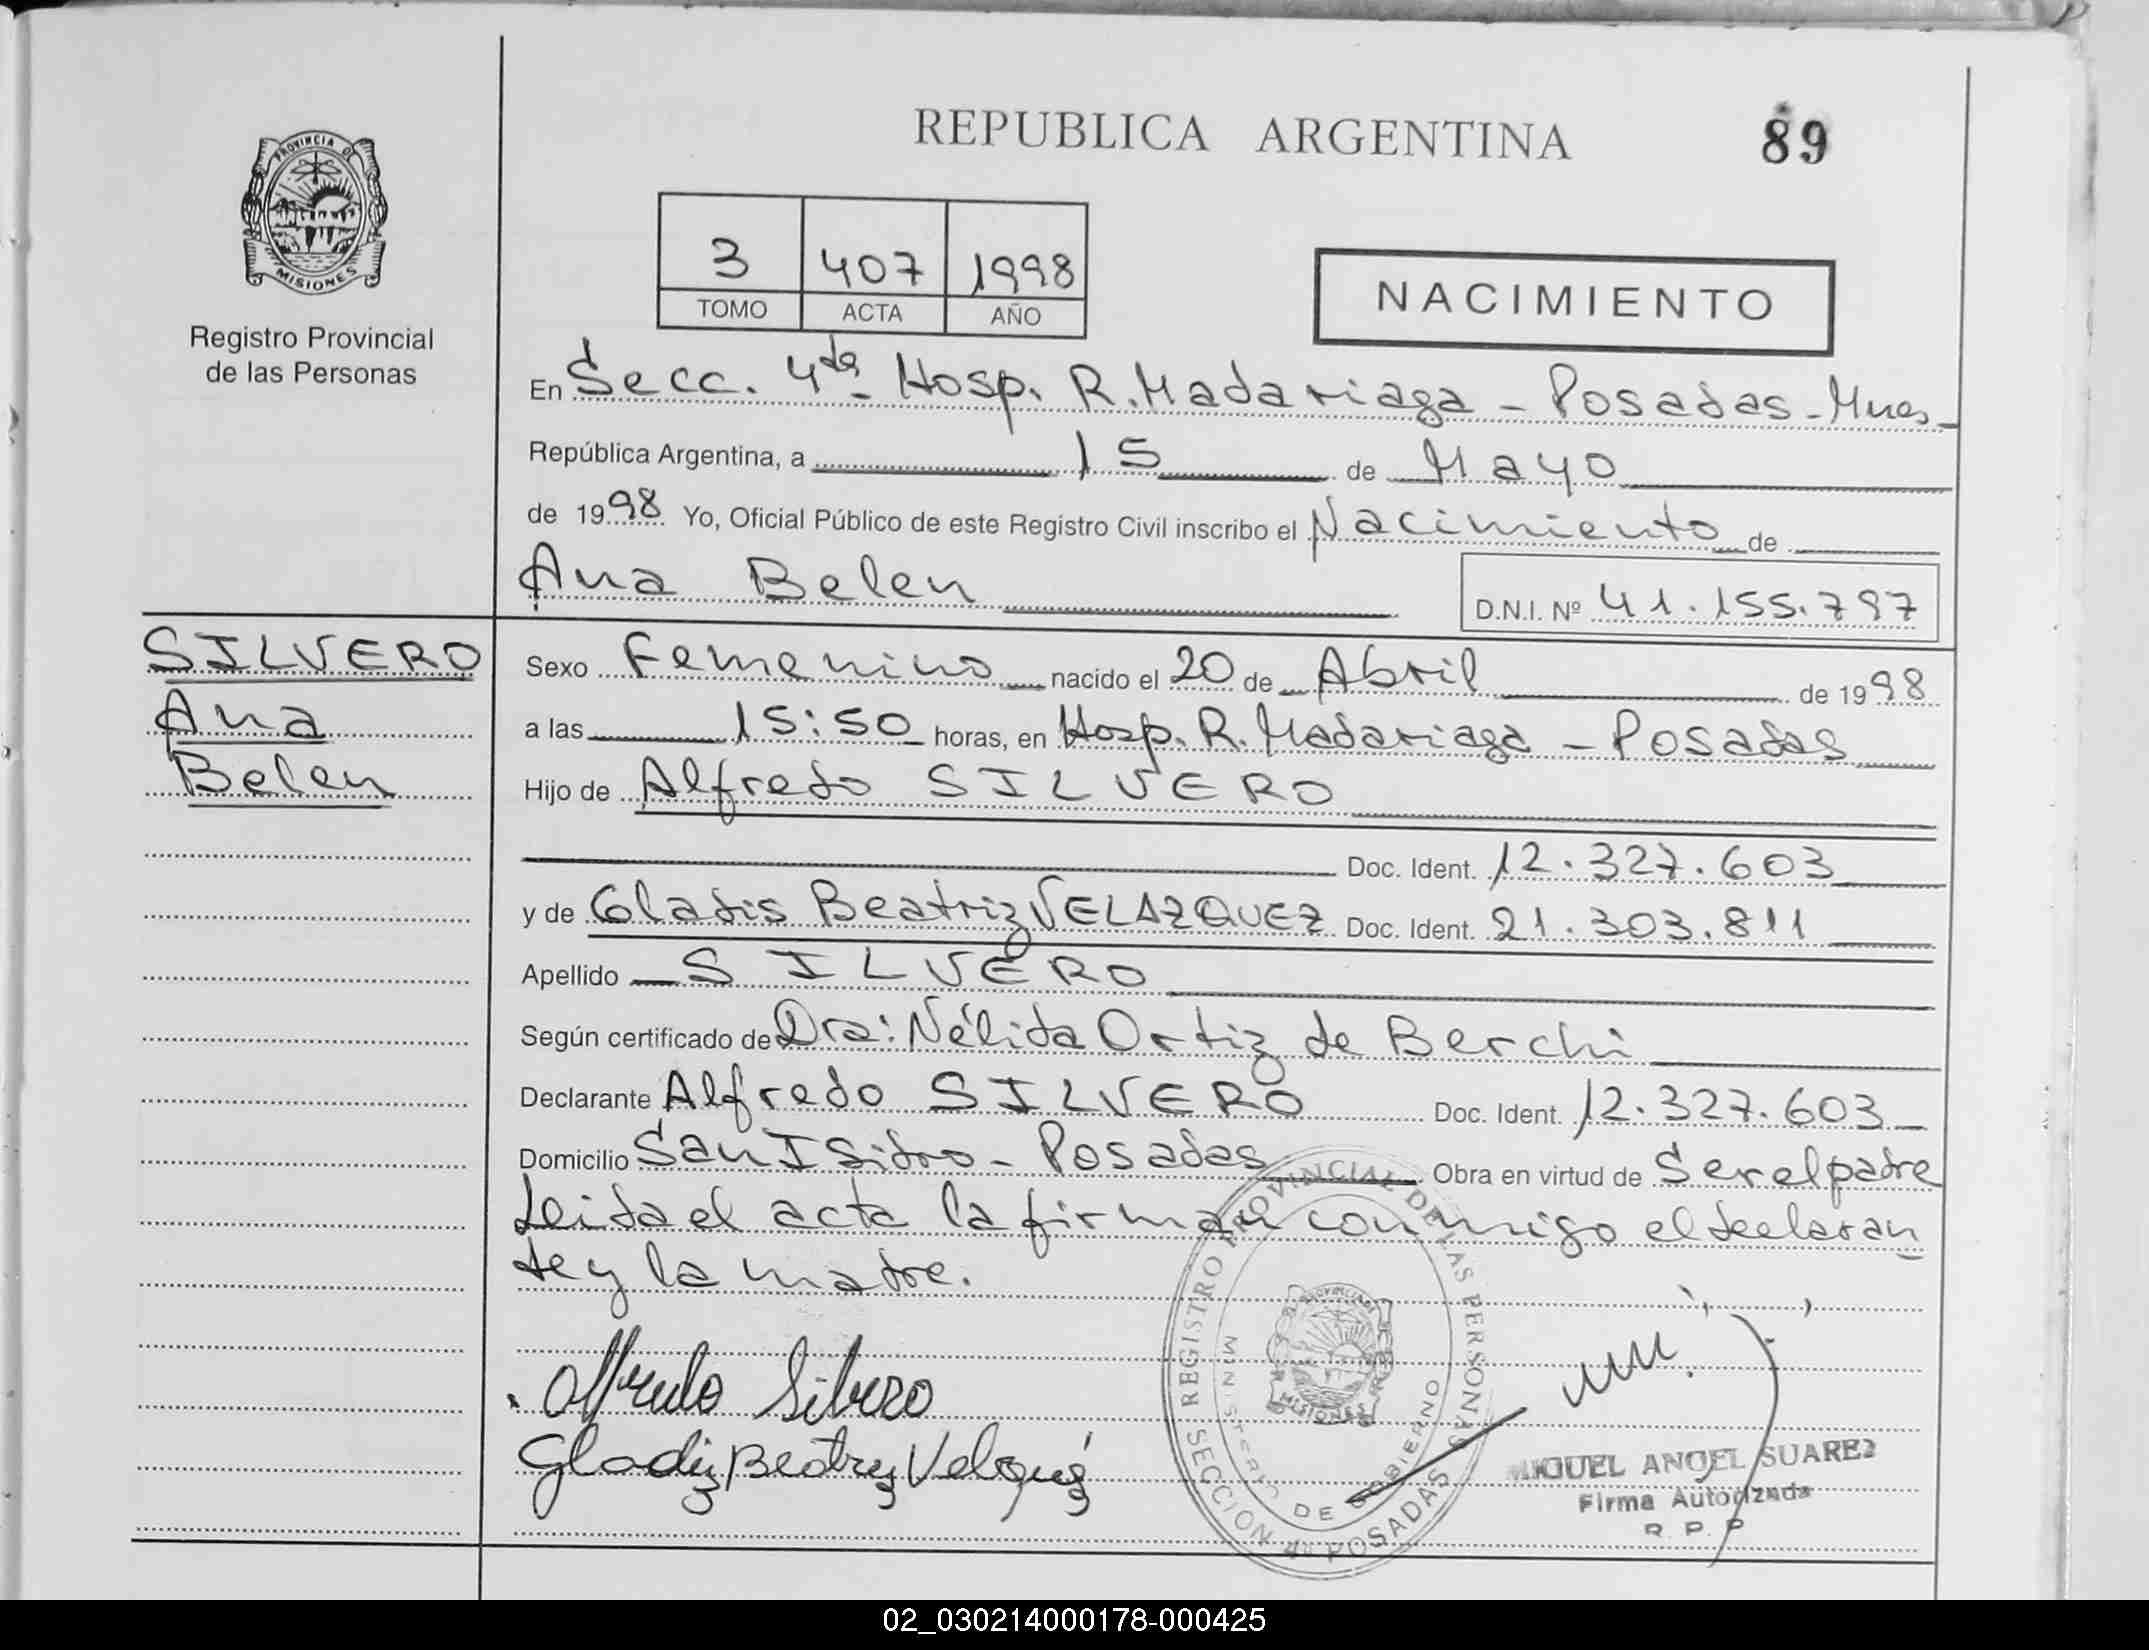 REPUBLICA ARGENTINA
89
PROVINCIA DE
MISIONES
Registro Provincial
de las Personas
3 407 1998
TOMO ACTA AÑO
NACIMIENTO
En Secc. 4ta Hosp. R. Madariaga - Posadas - Mnes
República Argentina, a 15 de Mayo
de 1998 Yo, Oficial Público de este Registro Civil inscribo el Nacimiento de
Ana Belen
D.N.I. Nº 41.155.797
SILVERO
Ana
Belen
Sexo Femenino nacido el 20 de Abril de 1998
a las 15:50 horas, en Hosp. R. Madariaga - Posadas
Hijo de Alfredo SILVERO
Doc. Ident. 12.327.603
y de Gladis Beatriz VELAZQUEZ Doc. Ident. 21.303.811
Apellido SILVERO
Según certificado de Dra: Nélida Ortiz de Berchi
Declarante Alfredo SILVERO Doc. Ident. 12.327.603
Domicilio San Isidro - Posadas Obra en virtud de Ser el padre
Leida el acta la firman conmigo el declaran
te y la madre.
Alfredo Silvero
Gladiz Beatrez Velaquez
REGISTRO PROVINCIAL DE LAS PERSONAS
SECCION 4ª POSADAS
MINISTERIO DE GOBIERNO
MISIONES
MIGUEL ANGEL SUAREZ
Firma Autorizada
R. P. P
02_030214000178-000425